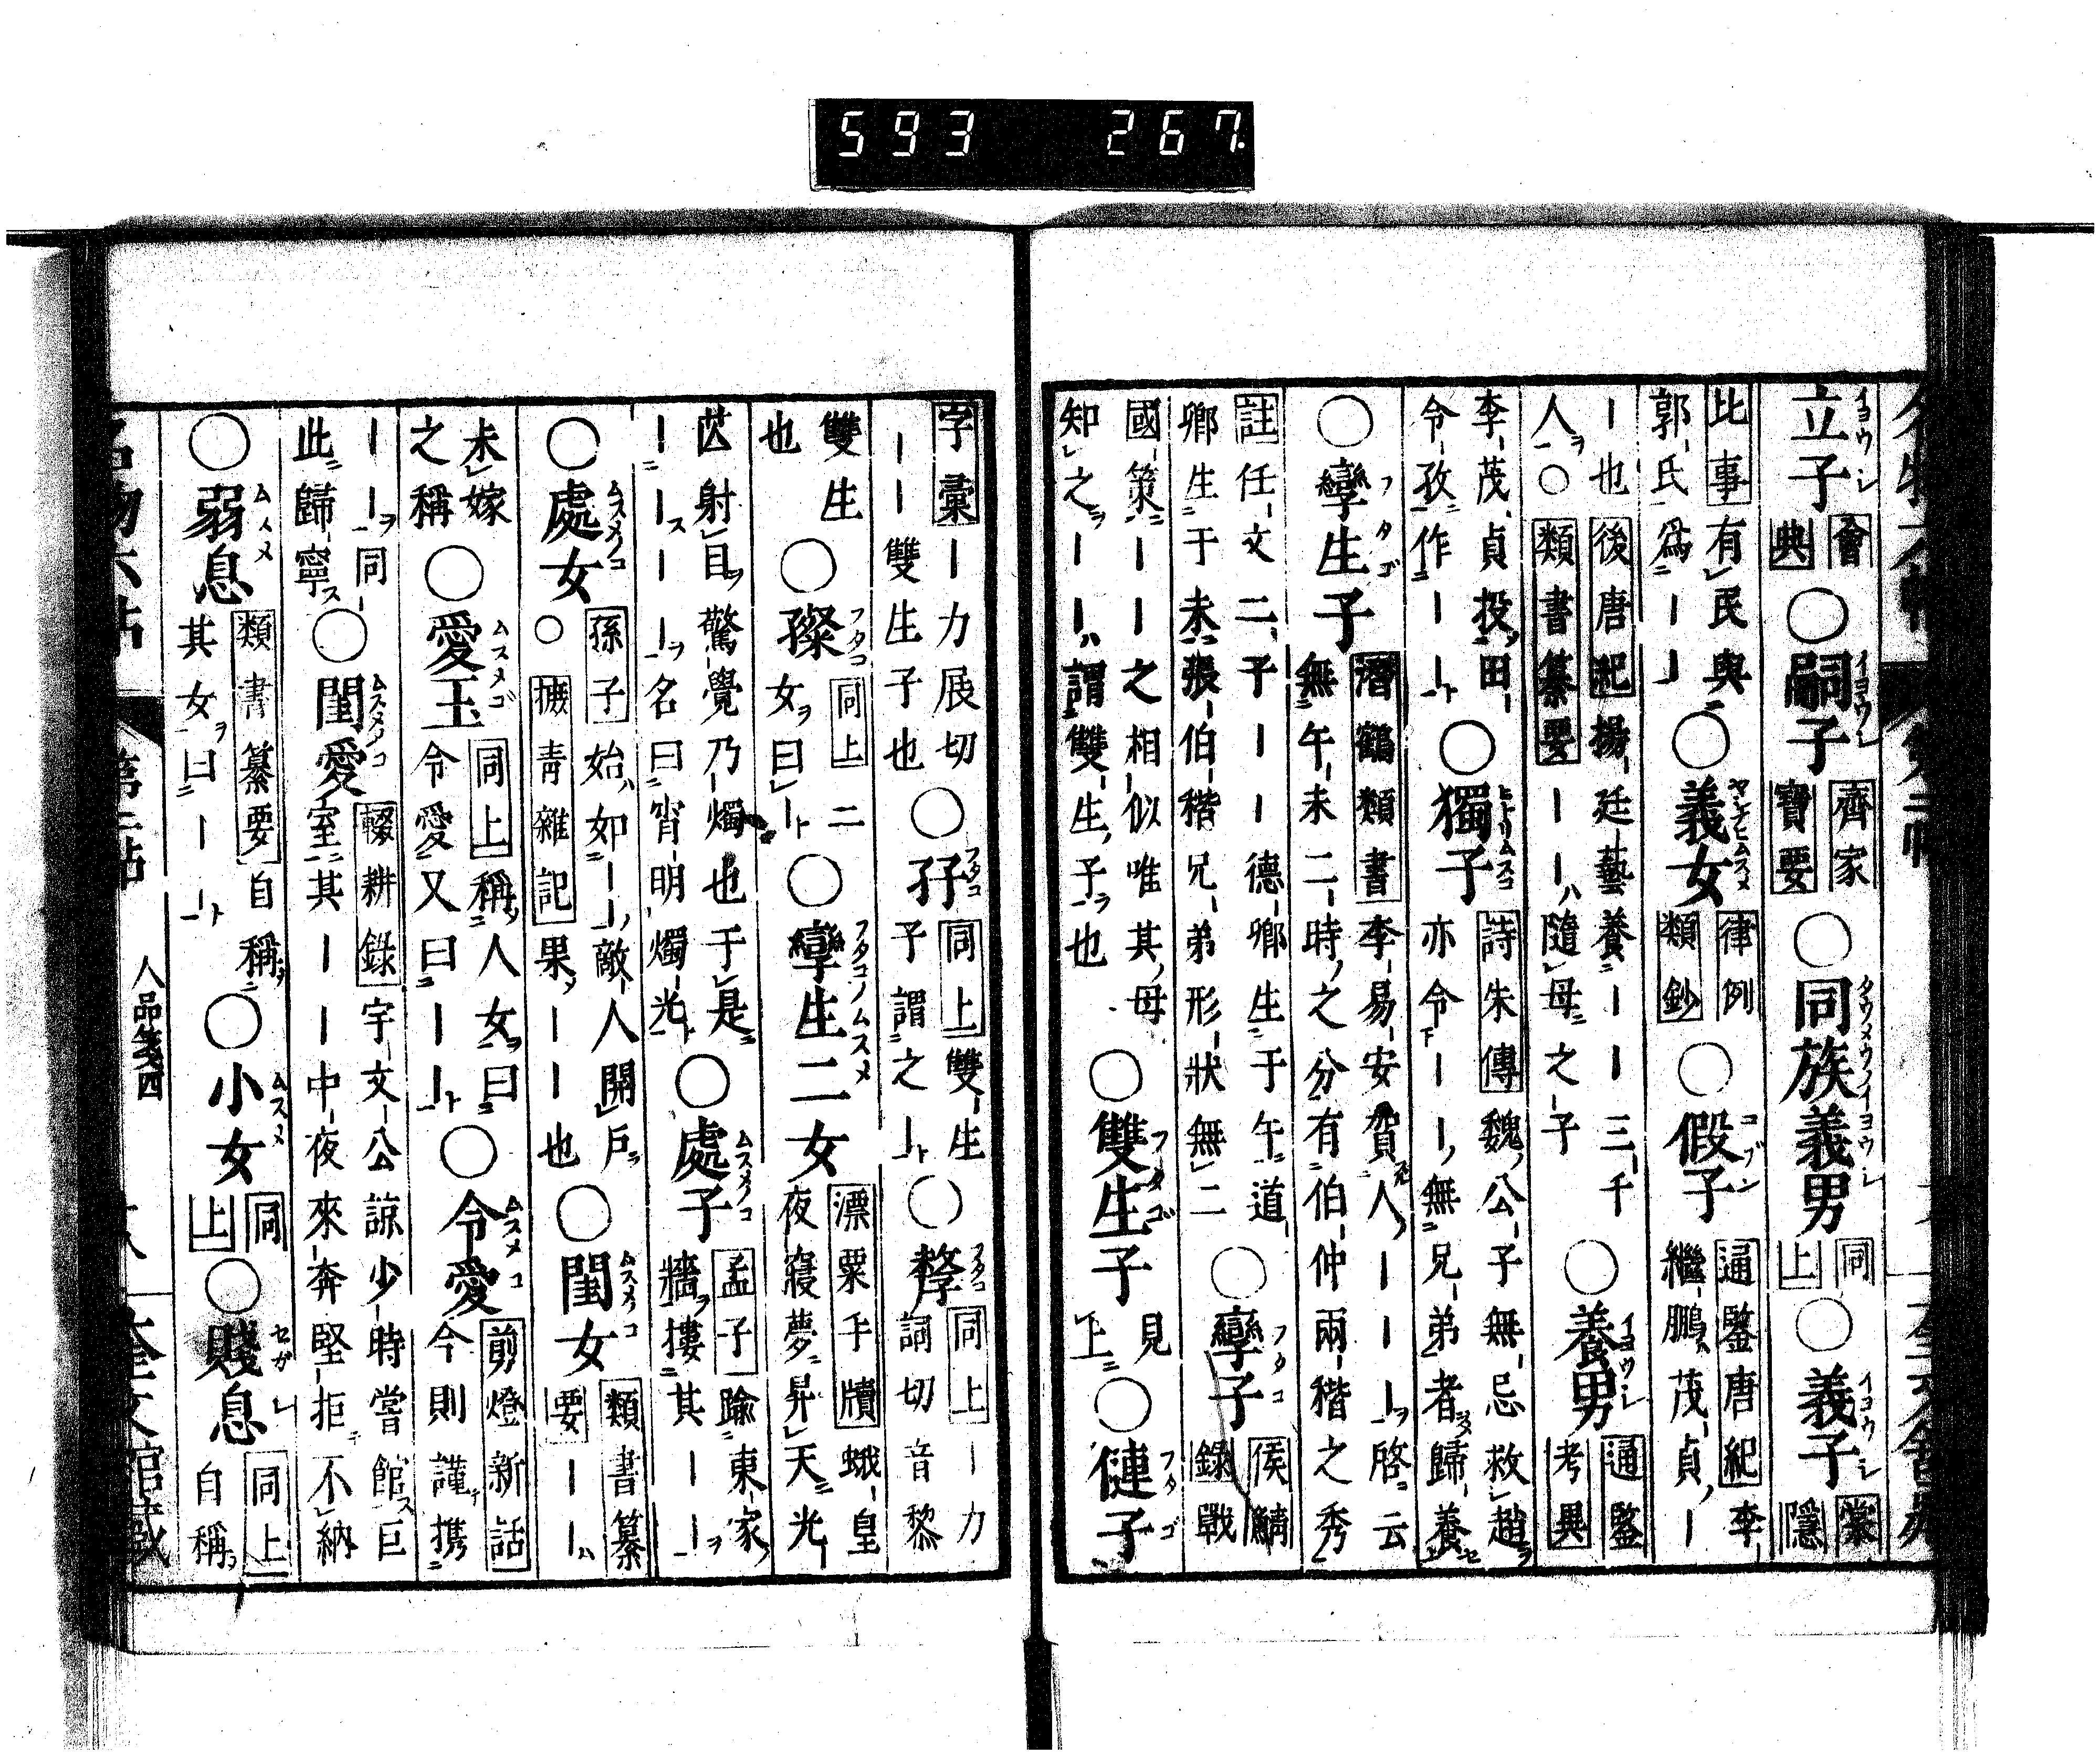 593 267.
立子 會典 ○嗣子 齊家寶要 ○同族義男 同上 ○義子 棠隱
比事 有民與郭氏為ーー ○義女 律例類鈔 ○假子 通鑒唐紀 李繼鵬茂貞ー
ー也 後唐紀 揚廷藝養ーー三千人 ○ 類書纂要 ーー隨母之子 ○養男 通鑒考異
李茂貞投田令孜作ーー ○獨子 詩朱傳 魏公子無忌救趙亦令ーー無兄弟者歸養
○孿生子 潛鶴類書 李易安賀人ーーー啓云無午未二時之分有伯仲兩稭之秀
註 任文二子ーー德卿生于午道卿生于未張伯稭兄弟形狀無二 ○孿子 侯鯖錄 戰
國策ーー之相似唯其母知之ーー謂雙生子也 ○雙生子 見上 ○健子
字彙 ー力展切ーー雙生子也 ○孖 同上 雙生子謂之ー ○孷 同上 ー力詞切音黎
雙生也 ○㜗 同上 二女曰ー ○孿生二女 漂粟手牘 蛾皇夜寢夢昇天光
芒射目驚覺乃燭也于是ーーーー名曰宵明燭光 ○處子 孟子 踰東家牆摟其ーー
○處女 孫子 始如ーー敵人開戶 ○ 摭青雜記 果ーー也 ○閨女 類書纂要 ーー
未嫁之稱 ○愛玉 同上 稱人女曰令愛又曰ーー ○令愛 剪燈新話 今則謹攜
ーー同此歸寧 ○閨愛 輟耕錄 宇文公諒少時嘗館巨室其ーー中夜來奔堅拒不納
○弱息 類書纂要 自稱其女曰ーー ○小女 同上 ○賤息 同上 自稱
人品箋四